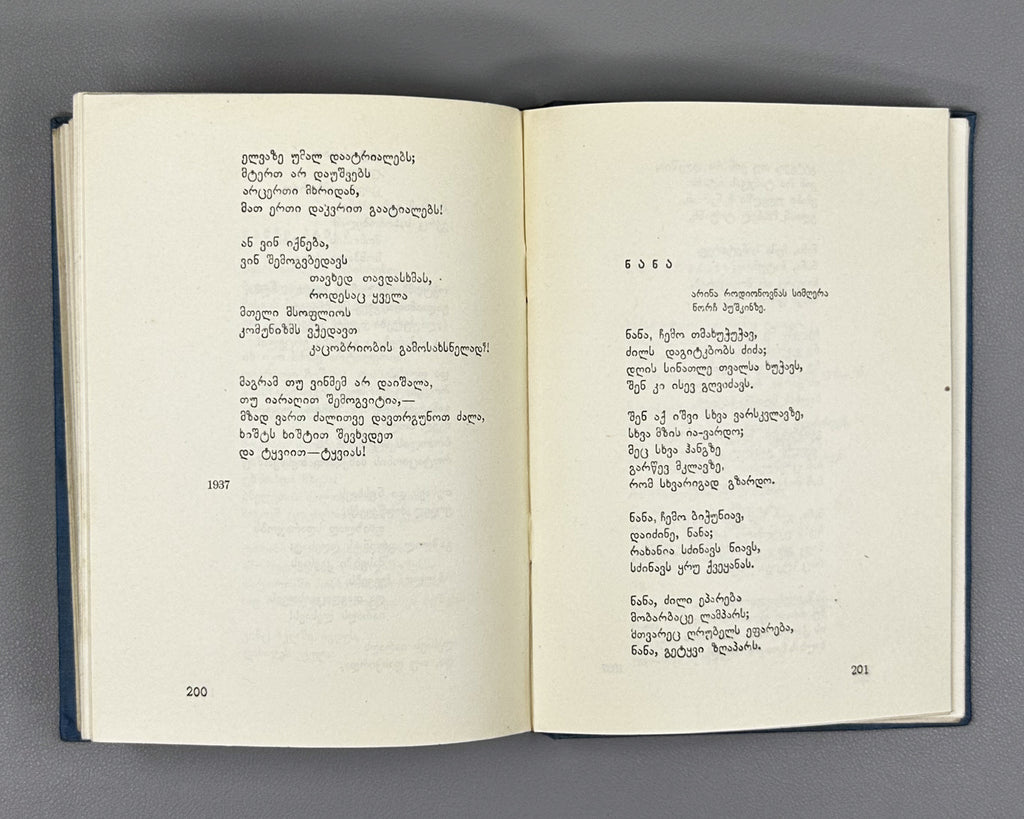 ელვაზე უმალ დაატრიალებს;
მტერთ არ დაუშვებს
არცერთი მხრიდან,
მათ ერთი დაკვრით გაატიალებს!
ან ვინ იქნება,
ვინ შემოგვბედავს
თავხედ თავდასხმას,
როდესაც ყველა
მთელი მსოფლიოს
კომუნიზმს ვჭედავთ
კაცობრიობის გამოსახსნელად?!
მაგრამ თუ ვინმემ არ დაიშალა,
თუ იარაღით შემოგვიტია,—
მზად ვართ ძალითვე დავთრგუნოთ ძალა,
ხიშტს ხიშტით შევხვდეთ
და ტყვიით—ტყვიას!
1937
200
ნანა
არინა როდიონოვნას სიმღერა
ნორჩ პუშკინზე.
ნანა, ჩემო თმახუჭუჭავ,
ძილს დაგიტკბობს ძიძა;
დღის სინათლე თვალსა ხუჭავს,
შენ კი ისევ გღვიძავს.
შენ აქ იშვი სხვა ვარსკვლავზე,
სხვა მზის ია-ვარდო;
მეც სხვა ჰანგზე
გარწევ მკლავზე,
რომ სხვარიგად გზარდო.
ნანა, ჩემო ბიჭუნიავ,
დაიძინე, ნანა;
რახანია სძინავს ნიავს,
სძინავს ყრუ ქვეყანას.
ნანა, ძილი ეპარება
მობარბაცე ლამპარს;
მთვარეც ღრუბელს ეფარება,
ნანა, გეტყვი ზღაპარს.
201